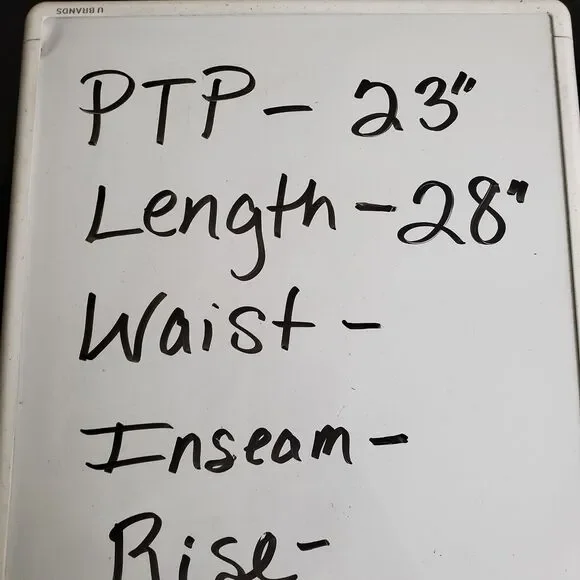 U BRANDS
PTP - 23"
Length - 28"
Waist -
Inseam -
Rise -